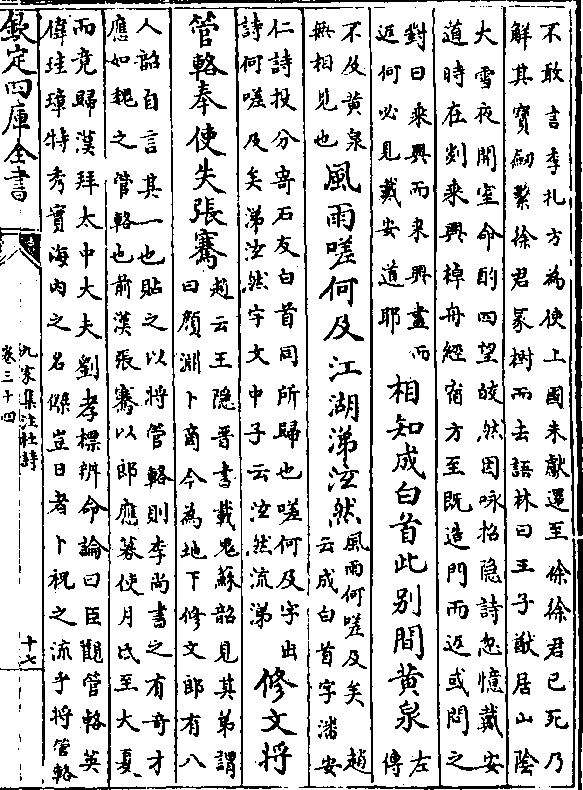 不敢言季札方為使上國未獻還至徐徐君已死乃
解其寶劒繫徐君冢樹而去語林曰王子猷居山陰
大雪夜開室命酌四望皎然因咏招隐詩忽憶戴安
道時在剡乘興棹舟經宿方至既造門而返或問之
對曰乘興而来興盡而
返何必見戴安道耶
相知成白首此别間黄泉
左
傳
不及黄泉
無相見也
風雨嗟何及江湖涕泫然
風雨何嗟及矣 趙
云成白首字潘安
仁詩投分寄石友白首同所歸也嗟何及字出
詩何嗟及矣涕泫然字文中子云泫然流涕
修文將
管輅奉使失張騫
趙云王隐晉書載鬼蘇韶見其弟謂
曰顔淵卜商今為地下修文郎有八
人韶自言其一也貼之以將管輅則李尚書之有奇才
應如魏之管輅也前漢張騫以郎應募使月氐至大夏
而竟歸漢拜太中大夫劉孝標辨命論曰臣觀管輅英
偉珪璋特秀實海内之名傑豈日者卜祝之流乎將管輅
欽定四庫全書
九家集注杜詩
卷三十四
十七